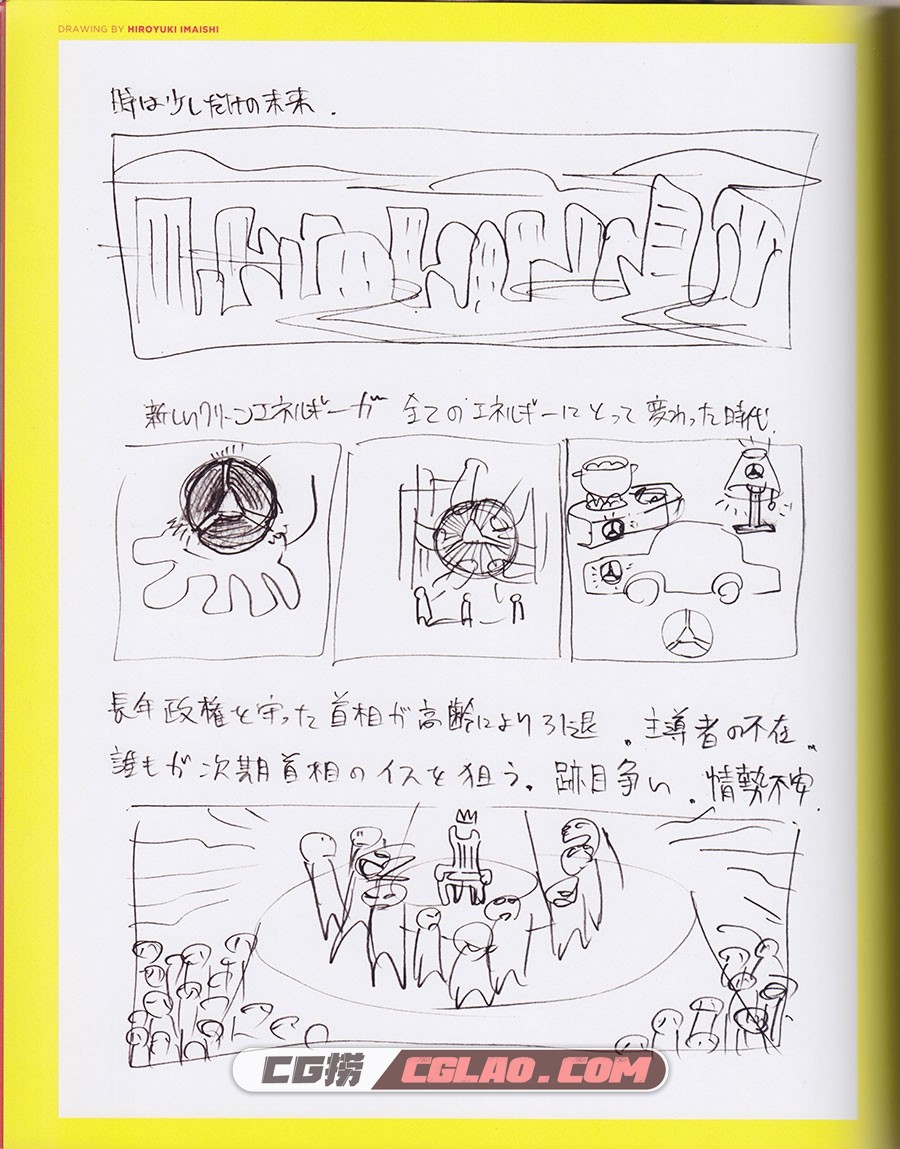 DRAWING BY HIROYUKI IMAISHI
時は少しだけの未来.
新しいクリーンエネルギーが 全てのエネルギーにとって変わった時代.
長年政権を守った首相が高齢により引退. 主導者の不在..
誰もが次期首相のイスを狙う. 跡目争い. 情勢不安.
CG捞 CGLAO.COM